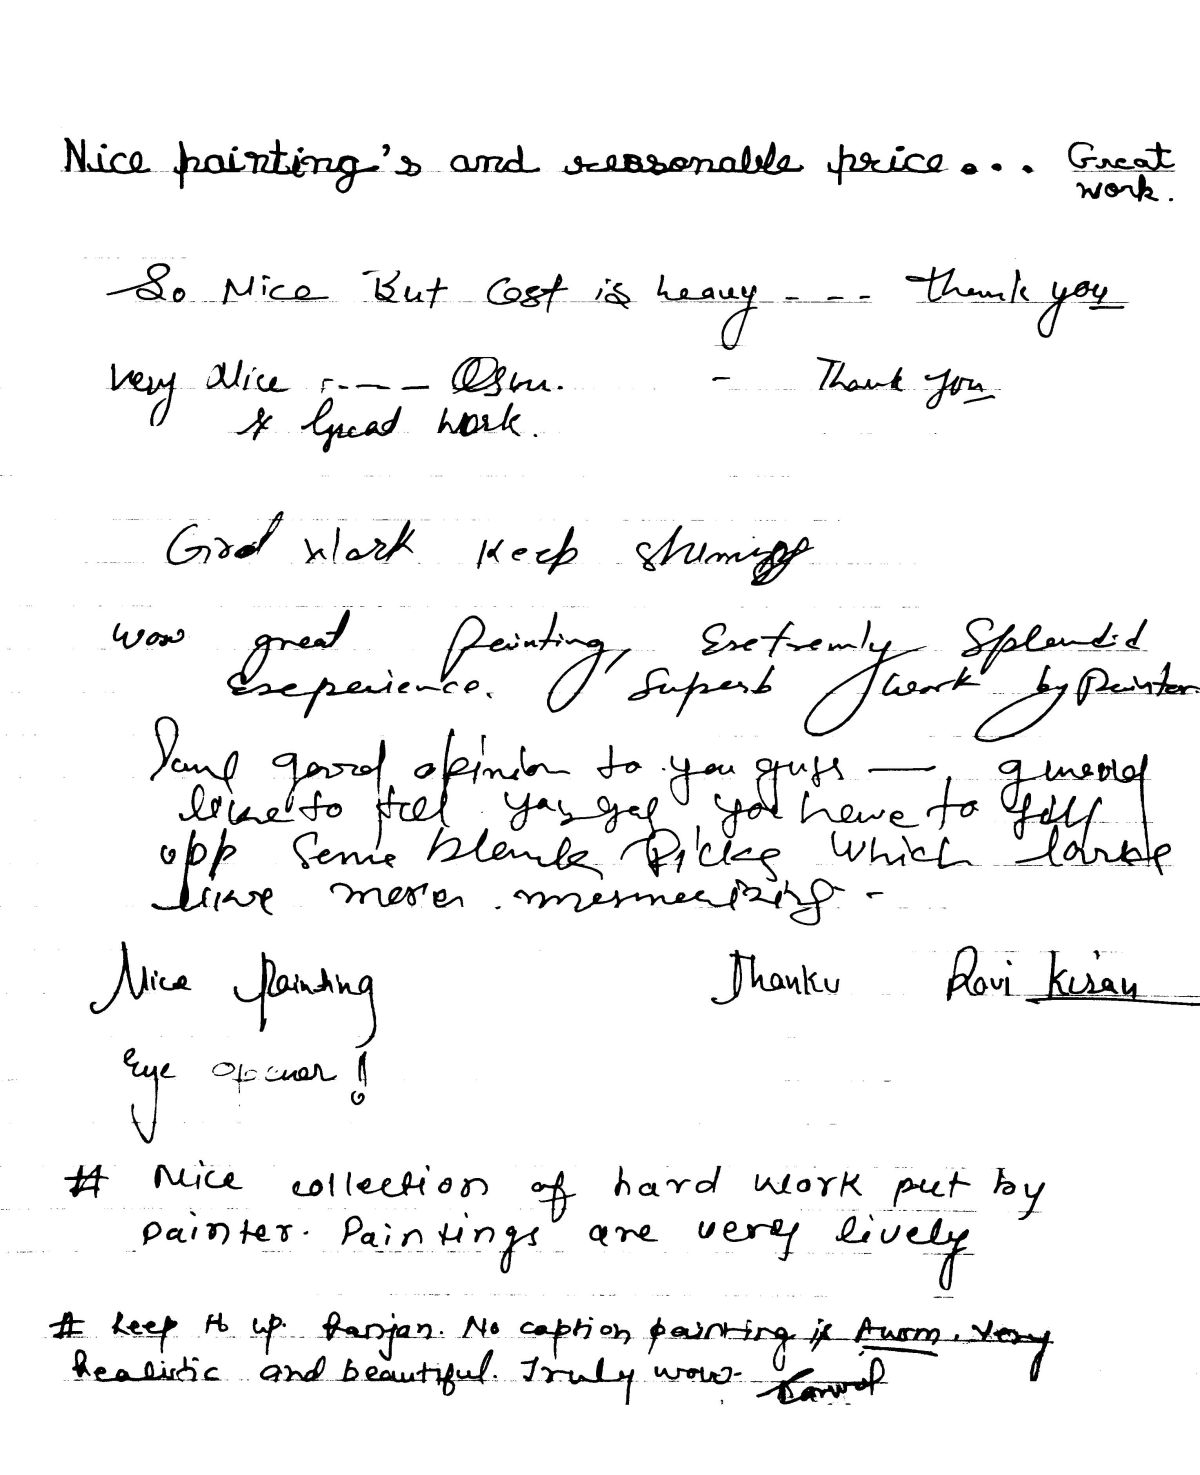 Nice painting's and reasonable price... Great
work.
So Nice But Cost is heavy - - - thank you
very Nice - - - - - Thank you
& Great work.
Good Work Keep shining
wow great Painting, Exetremly Splendid
Exeperience. Superb work by Painter
good opinion to you guys —,
like to tell you have to fill
upp Some blank which
like more mesmerizing -
Nice Painting Thanku Ravi Kisan
Eye opener!
# Nice collection of hard work put by
painter. Paintings are very lively
# Keep it up. Ranjan. No caption painting is Awsm. Very
Realistic and beautiful. Truly wow-